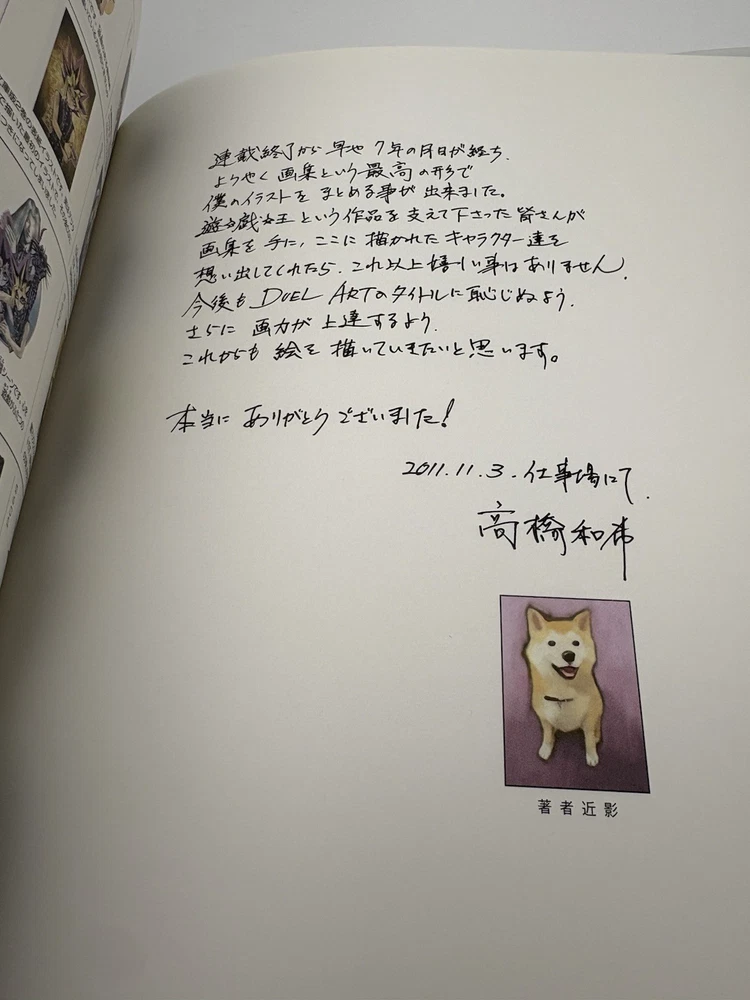 連載終了から早や7年の月日が経ち、
ようやく画集という最高の形で
僕のイラストをまとめる事が出来ました。
遊☆戯☆王という作品を支えて下さった皆さんが
画集を手に、ここに描かれたキャラクター達を
想い出してくれたら、これ以上嬉しい事はありません。
今後もDUEL ARTのタイトルに恥じぬよう、
さらに画力が上達するよう、
これからも絵を描いていきたいと思います。
本当にありがとうございました!
2011.11.3.仕事場にて、
高橋和希
著者近影